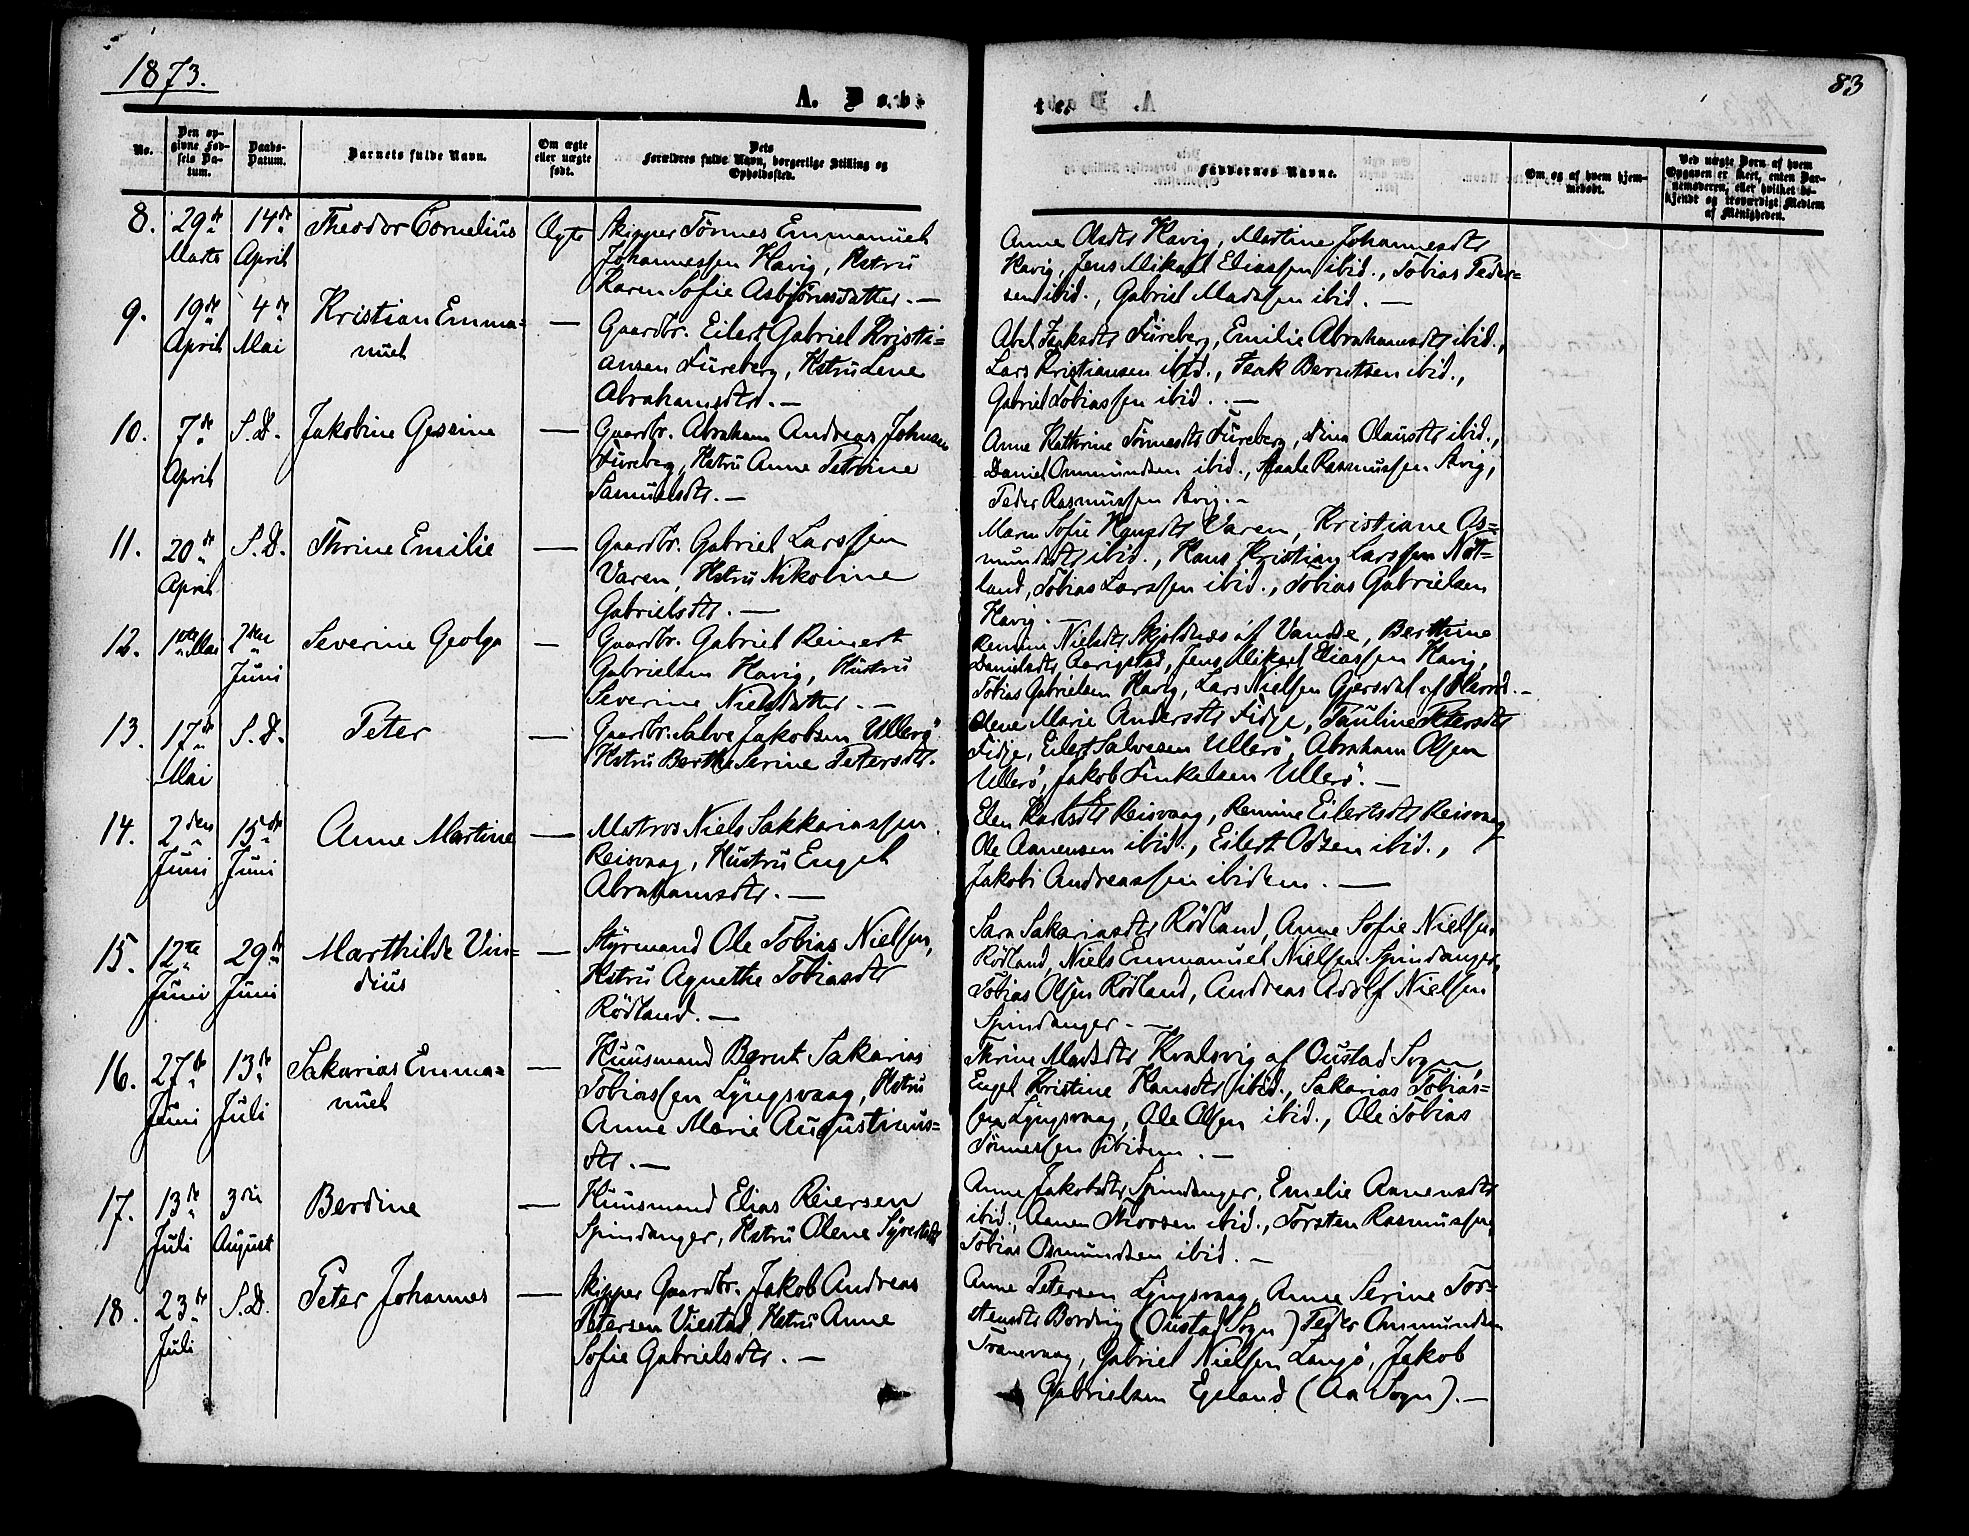 1873.
83
A. Døb-
te.
No.
Den op-
givne Fød-
sels Da-
tum.
Daabs-
Datum.
Barnets fulde Navn.
Om ægte
eller uægte
født.
Dets
Forældres fulde Navn, borgerlige Stilling og
Opholdssted.
Faddernes Navne.
Om og af hvem hjem-
medøbt.
Ved uægte Børn af hvem
Opgaven er skeet, enten Bar-
nemoderen, eller hvilket be-
kjendt og troværdigt Medlem
af Menigheden.
8. 29de Marts 14de April Theodor Cornelius Ægte
Skipper Tönnes Emmanuel
Johannessen Havig, Hstru
Karen Sofie Asbjörnsdatter. —
Anne Olsdtr Havig, Martine Johannesdtr
Havig, Jens Mikael Eliassen ibid., Tobias Peder-
sen ibid., Gabriel Madsen ibid. —
9. 19de April 4de Mai Kristian Emma-
nuel —
Gaardbr. Eilert Gabriel Kristi-
ansen Fureberg, Hstru Lene
Abrahamsdtr. —
Abel Isaksdtr Fureberg, Emilie Abrahamsdtr ibid.,
Lars Kristiansen ibid., Isak Berntsen ibid.,
Gabriel Tobiassen ibid. . —
10. 7de April S.D. Jakobine Gesine —
Gaardbr. Abraham Andreas Johnsen
Fureberg, Hstru Anne Petrine
Samuelsdtr. —
Anne Kathrine Tönnesdtr Fureberg, Dina Olausdtr ibid.,
Daniel Ommundsen ibid., Rasmussen Avig,
Peder Rasmussen Avig. —
11. 20de April S.D. Thrine Emilie —
Gaardbr. Gabriel Larssen
Varen, Hstru Nikoline
Gabrielsdtr. —
Maren Sofie Varen, Kristiane Os-
mundsdtr ibid., Hans Kristian Larssen Nöt-
land, Tobias Larssen ibid., Tobias Gabrielsen
Havig. —
12. 1ste Mai 2den Juni Severine Georga —
Gaardbr. Gabriel Reinert
Gabrielsen Havig, Hustru
Severine Nielsdatter. —
Remine Nielsdtr Skjoldnes af Vandse, Berthine
Danielsdtr Aarigstad, Jens Mikael Eliassen Havig,
Tobias Gabrielsen Havig, Lars Nielsen Gjersdal af Herred. —
13. 17de Mai S.D. Peter —
Gaardbr. Salve Jakobsen Ullerö
Hstru Berthe Serine Petersdtr.
Olene Marie Andersdtr Fidje, Pauline Petersdtr
Fidje, Eilert Salvesen Ullerö, Abraham Olsen
Ullerö, Jakob Tinkelsen Ullerö. —
14. 2den Juni 15de Juni Anne Martine —
Matros Niels Sakkariassen
Reisvaag, Hustru Engel
Abrahamsdtr. —
Elen Karlsdtr Reisvaag, Remine Eilertsdtr Reisvaag
Ole Aanensen ibid., Eilert Odsen ibid.,
Jakob Andreassen ibidem. —
15. 12te Juni 29de Juni Marthilde Vin-
dius —
Styrmand Ole Tobias Nielsen,
Hstru Agnethe Tobiasdtr
Rödland. —
Sara Sakariasdtr Rödland, Anne Sofie Nielsen
Rödland, Niels Emmanuel Nielsen Spindanger,
Tobias Olsen Rödland, Andreas Adolf Nielsen
Spindanger. —
16. 27de Juni 13de Juli Sakarias Emma-
nuel —
Huusmand Bernt Sakarias
Tobiassen Lyngsvaag, Hstru
Anne Marie Augustinus-
dtr. —
Thrine Madsdtr Kvalsvig af Oustad Sogn,
Engel Kristine Hansdtr ibid., Sakarias Tobias-
sen Lyngsvaag, Ole Olsen ibid., Ole Tobias
Tönnessen ibidem. —
17. 13de Juli 3die August Berdine —
Huusmand Elias Reiersen
Spindanger, Hstru Olene Syvertsdtr
Anne Jakobsdtr Spindanger, Emelie Aanensdtr
ibid., Aanen Thorsen ibid., Torsten Rasmussen,
Tobias Osmundsen ibid. —
18. 23de Juli S.D. Peter Johannes —
Skipper Gaardbr. Jakob Andreas
Petersen Viestad, Hstru Anne
Sofie Gabrielsdtr. —
Anne Petersen Lyngsvaag, Anne Serine Tor-
stensdtr Bordvig (Oustad Sogn) Peder Ommundsen
Tranevaag, Gabriel Nielsen Langö, Jakob
Gabrielsen Egeland (Aa Sogn). —